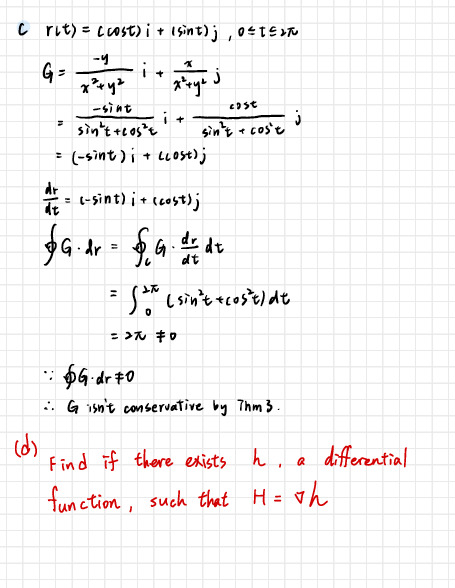 C r(t) = (cost) i + (sint) j , 0≤t≤2π
G = -y/(x²+y²) i + x/(x²+y²) j
= -sint/(sin²t+cos²t) i + cost/(sin²t+cos²t) j
= (-sint) i + (cost) j
dr/dt = (-sint) i + (cost) j
∮G·dr = ∮_C G·dr/dt dt
= ∫₀^2π (sin²t+cos²t) dt
= 2π ≠ 0
∵ ∮G·dr ≠ 0
∴ G isn't conservative by Thm 3.
(d) Find if there exists h, a differential
function, such that H = ∇h